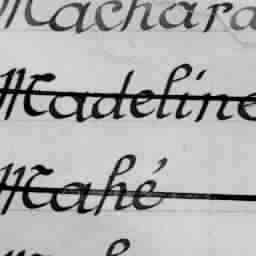 Machara
Madeline
Mahé